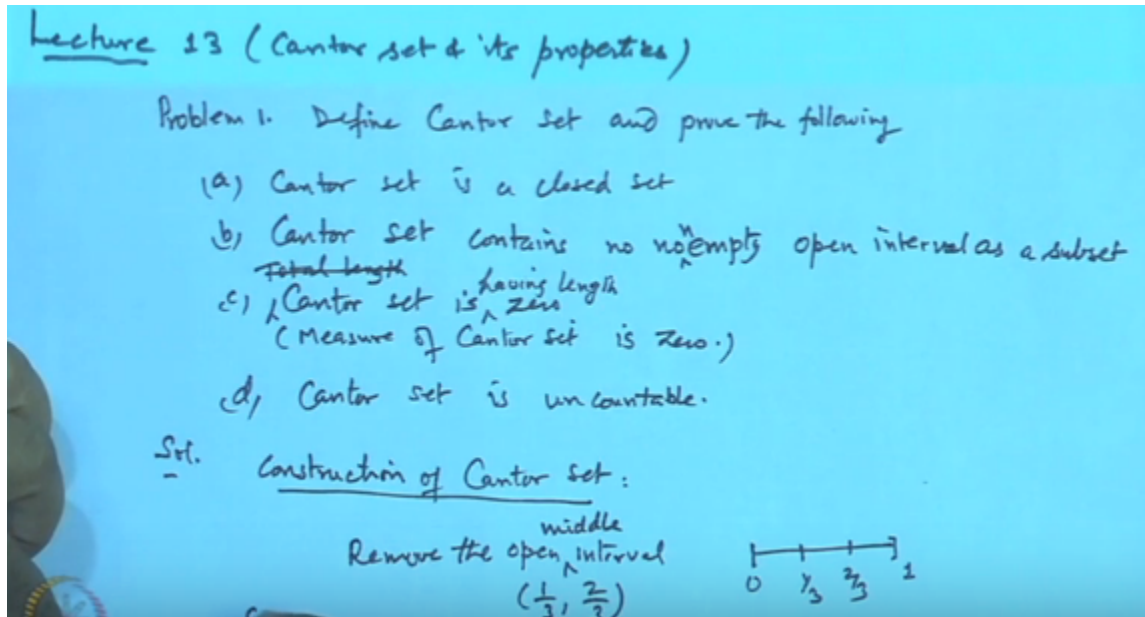 Lecture 13 (Cantor set & its properties)
Problem 1. Define Cantor Set and prove the following
(a) Cantor set is a closed set
(b) Cantor set contains no nonempty open interval as a subset
Total length
(c) Cantor set is having length zero
(Measure of Cantor set is zero.)
(d) Cantor set is uncountable.
Sol. Construction of Cantor set:
Remove the open middle interval
(1/3, 2/3)
0 1/3 2/3 1